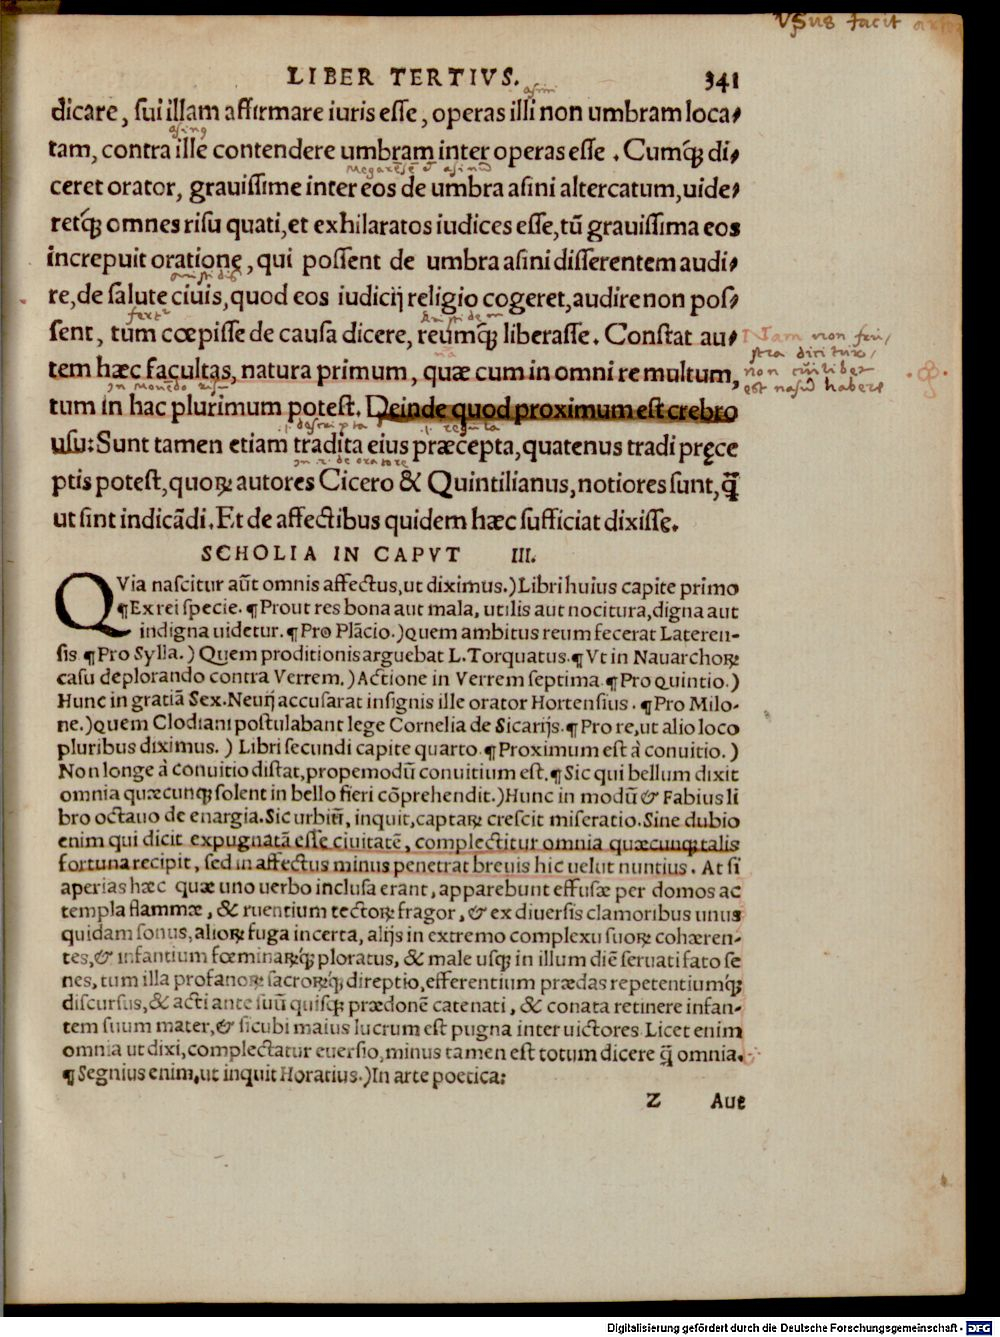 VSus facit
LIBER TERTIVS. 341
asini
dicare, sui illam affirmare iuris esse, operas illi non umbram loca⸗
asinus
tam, contra ille contendere umbram inter operas esse. Cumq́ꝫ di⸗
ceret orator, grauissime inter eos de umbra asini altercatum, uide⸗
retq́ꝫ omnes risu quati, et exhilaratos iudices esse, tũ grauissima eos
increpuit oratione, qui possent de umbra asini disserentem audi⸗
re, de salute ciuis, quod eos iudicij religio cogeret, audire non pos⸗
sent, tum cœpisse de causa dicere, reumq́ꝫ liberasse. Constat au⸗
Nam non
tem hæc facultas, natura primum, quæ cum in omni re multum,
non cuilibet
est nasum habere
tum in hac plurimum potest. Deinde quod proximum est crebro
.i. descripta .i. regula
usu: Sunt tamen etiam tradita eius præcepta, quatenus tradi pręce
in 2. de oratore
ptis potest, quoꝝ autores Cicero & Quintilianus, notiores sunt, q̃
ut sint indicãdi. Et de affectibus quidem hæc sufficiat dixisse.
SCHOLIA IN CAPVT III.
QVia nascitur aũt omnis affectus, ut diximus.) Libri huius capite primo
¶Ex rei specie. ¶Prout res bona aut mala, utilis aut nocitura, digna aut
indigna uidetur. ¶Pro Plãcio.) quem ambitus reum fecerat Lateren-
sis ¶Pro Sylla.) Quem proditionis arguebat L. Torquatus. ¶Vt in Nauarchoꝝ
casu deplorando contra Verrem.) Actione in Verrem septima ¶Pro quintio.)
Hunc in gratiã Sex. Neuij accusarat insignis ille orator Hortensius. ¶Pro Milo-
ne.) quem Clodiani postulabant lege Cornelia de Sicarijs. ¶Pro re, ut alio loco
pluribus diximus.) Libri secundi capite quarto. ¶Proximum est à conuitio.)
Non longe à conuitio distat, propemodũ conuitium est. ¶Sic qui bellum dixit
omnia quæcunqꝫ solent in bello fieri cõprehendit.) Hunc in modũ & Fabius li
bro octauo de enargia. Sic urbiũ, inquit, captaꝝ crescit miseratio. Sine dubio
enim qui dicit expugnatã esse ciuitatẽ, complectitur omnia quæcunqꝫ talis
fortuna recipit, sed in affectus minus penetrat breuis hic uelut nuntius. At si
aperias hæc quæ uno uerbo inclusa erant, apparebunt effusæ per domos ac
templa flammæ, & ruentium tectoꝝ fragor, & ex diuersis clamoribus unus
quidam sonus, alioꝝ fuga incerta, alijs in extremo complexu suoꝝ cohæren-
tes, & infantium fœminaꝝq́ꝫ ploratus, & male usqꝫ in illum diẽ seruati fato se
nes, tum illa profanoꝝ sacroꝝq́ꝫ direptio, efferentium prædas repetentiumq́ꝫ
discursus, & acti ante suũ quisqꝫ prædonẽ catenati, & conata retinere infan-
tem suum mater, & sicubi maius lucrum est pugna inter uictores Licet enim
omnia ut dixi, complectatur euersio, minus tamen est totum dicere q̃ omnia.
¶Segnius enim, ut inquit Horatius.) In arte poetica:
Z Aut
Digitalisierung gefördert durch die Deutsche Forschungsgemeinschaft - DFG